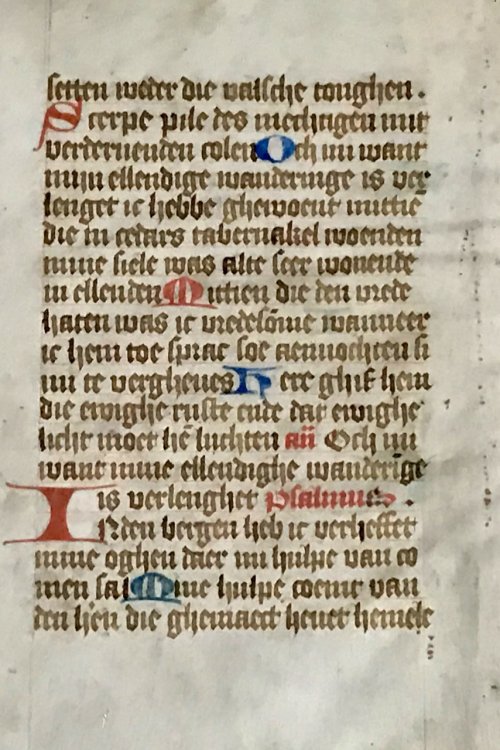 setten weder die valsche tonghen .
Scerpe pile des mechtigen mit
verderuenden colen Och mi want
mijn ellendige wanderinge is ver
lenget ic hebbe ghewoent mittiē
die in cedars tabernakel woenden
mine siele was alte seer wonende
in ellenden Mittien die den vrede
haten was ic vredesōme wanneer
ic hem toe sprac soe aenuochten si
mi te vergheues Here ghif hem
die ewighe ruste ende dat ewighe
licht moet hē luchten añ Och mi
want mine ellendighe wanderīge
is verlenghet psalmus .
INden bergen heb ic verheffet
mine oghen daer mi hulpe van co
men sal Mine hulpe coemt van
den hēn die ghemaect heuet hemele